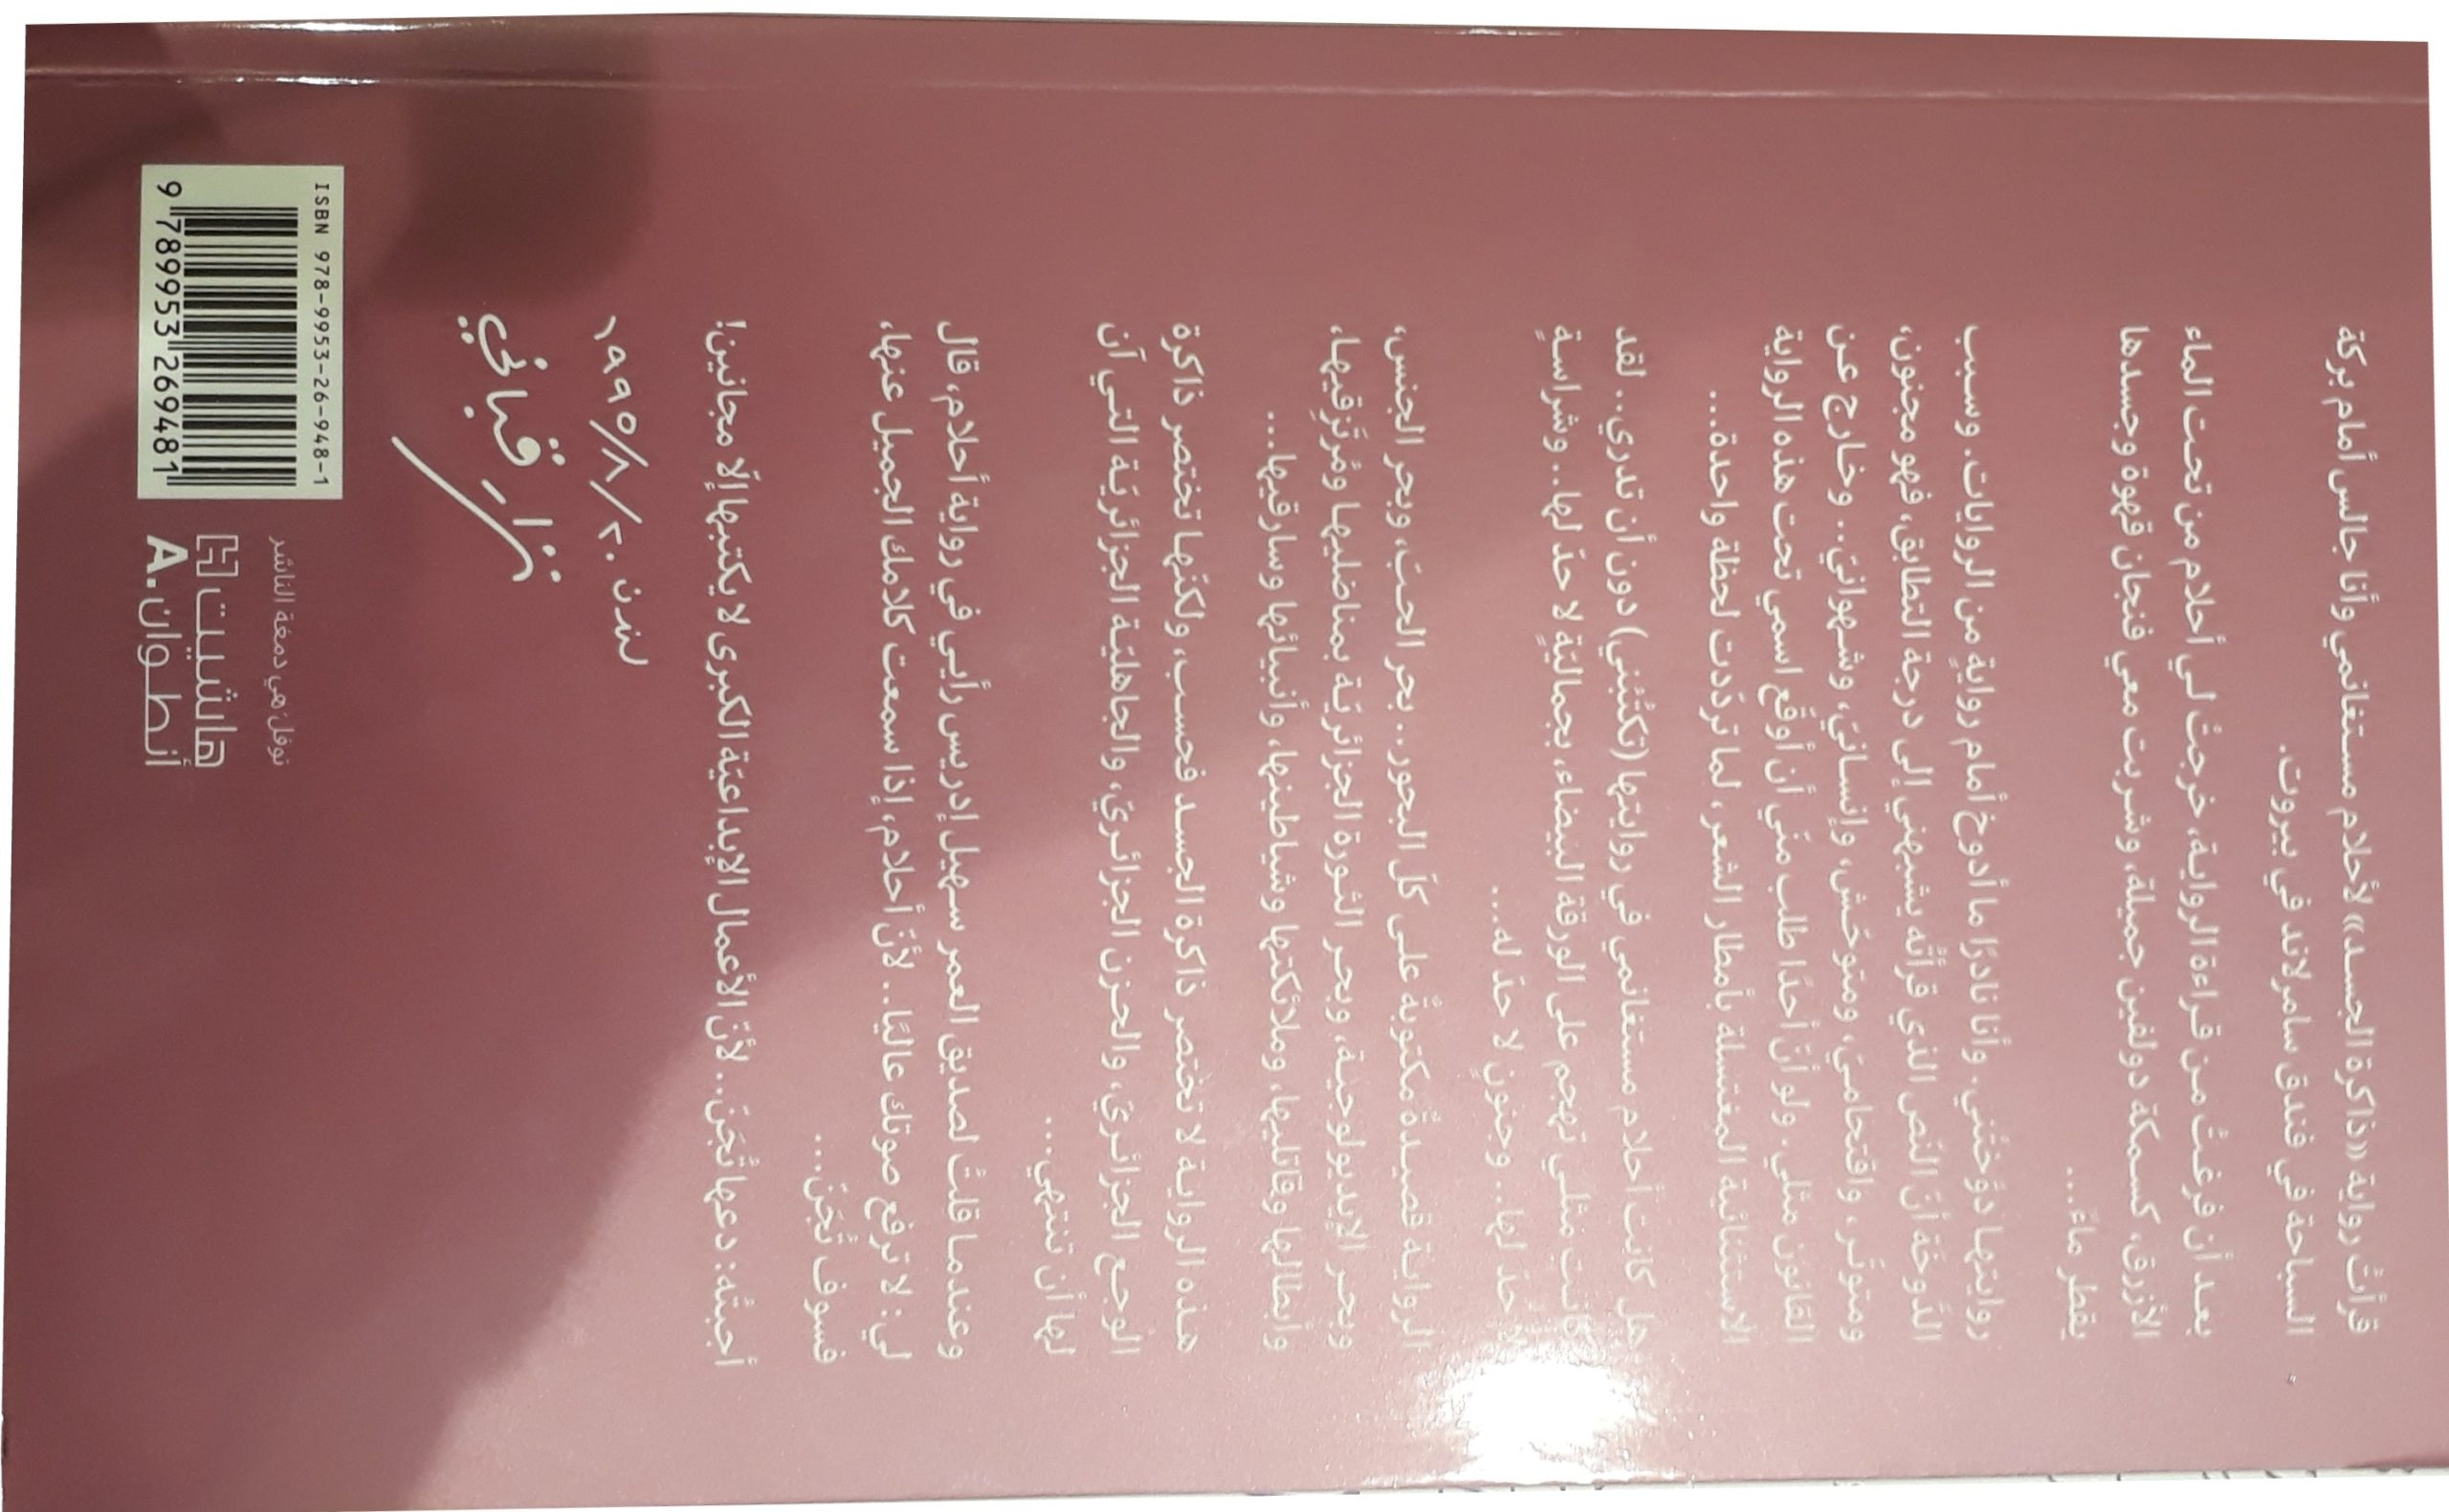 قرأتُ رواية «ذاكرة الجسد» لأحلام مستغانمي وأنا جالس أمام بركة
السباحة في فندق سامرلاند في بيروت.
بعد أن فرغتُ من قراءة الرواية، خرجتْ لي أحلام من تحت الماء
الأزرق، كسمكة دولفين جميلة، وشربت معي فنجان قهوة وجسدها
يقطر ماءً...
روايتها دوّختني. وأنا نادرًا ما أدوخ أمام رواية من الروايات. وسبب
الدّوخة أنّ النّص الذي قرأتُه يشبهني إلى درجة التطابق، فهو مجنون،
ومتوتّر، واقتحاميّ، ومتوحّش، وإنسانيّ، وشهوانيّ.. وخارج عن
القانون مثلي. ولو أنّ أحدًا طلب منّي أن أوقّع اسمي تحت هذه الرواية
الاستثنائية المغتسلة بأمطار الشعر، لما تردّدت لحظة واحدة...
هل كانت أحلام مستغانمي في روايتها (تكتُبني) دون أن تدري.. لقد
كانت مثلي تهجم على الورقة البيضاء، بجماليّةٍ لا حدّ لها.. وشراسةٍ
لا حدّ لها.. وجنونٍ لا حدّ له...
الرواية قصيدةٌ مكتوبةٌ على كلّ البحور.. بحر الحبّ، وبحر الجنس،
وبحر الإيديولوجية، وبحر الثورة الجزائريّة بمناضليها ومُرتَزِقيها،
وأبطالها وقاتليها، وملائكتها وشياطينها، وأنبيائها وسارقيها...
هذه الرواية لا تختصر ذاكرة الجسد فحسب، ولكنّها تختصر ذاكرة
الوجع الجزائريّ، والحزن الجزائريّ، والجاهليّة الجزائريّة التي آن
لها أن تنتهي...
وعندما قلتُ لصديق العمر سهيل إدريس رأيي في رواية أحلام، قال
لي: لا ترفع صوتك عاليًا.. لأنّ أحلام، إذا سمعت كلامك الجميل عنها،
فسوف تُجَنّ...
أجبتُه: دعها تُجَنّ.. لأنّ الأعمال الإبداعيّة الكبرى لا يكتبها إلّا مجانين!
لندن ٢٠/٨/١٩٩٥
نزار قباني
ISBN 978-9953-26-948-1
9 789953 269481
نوفل هي دمغة الناشر
هاشيت
أنطوان A.